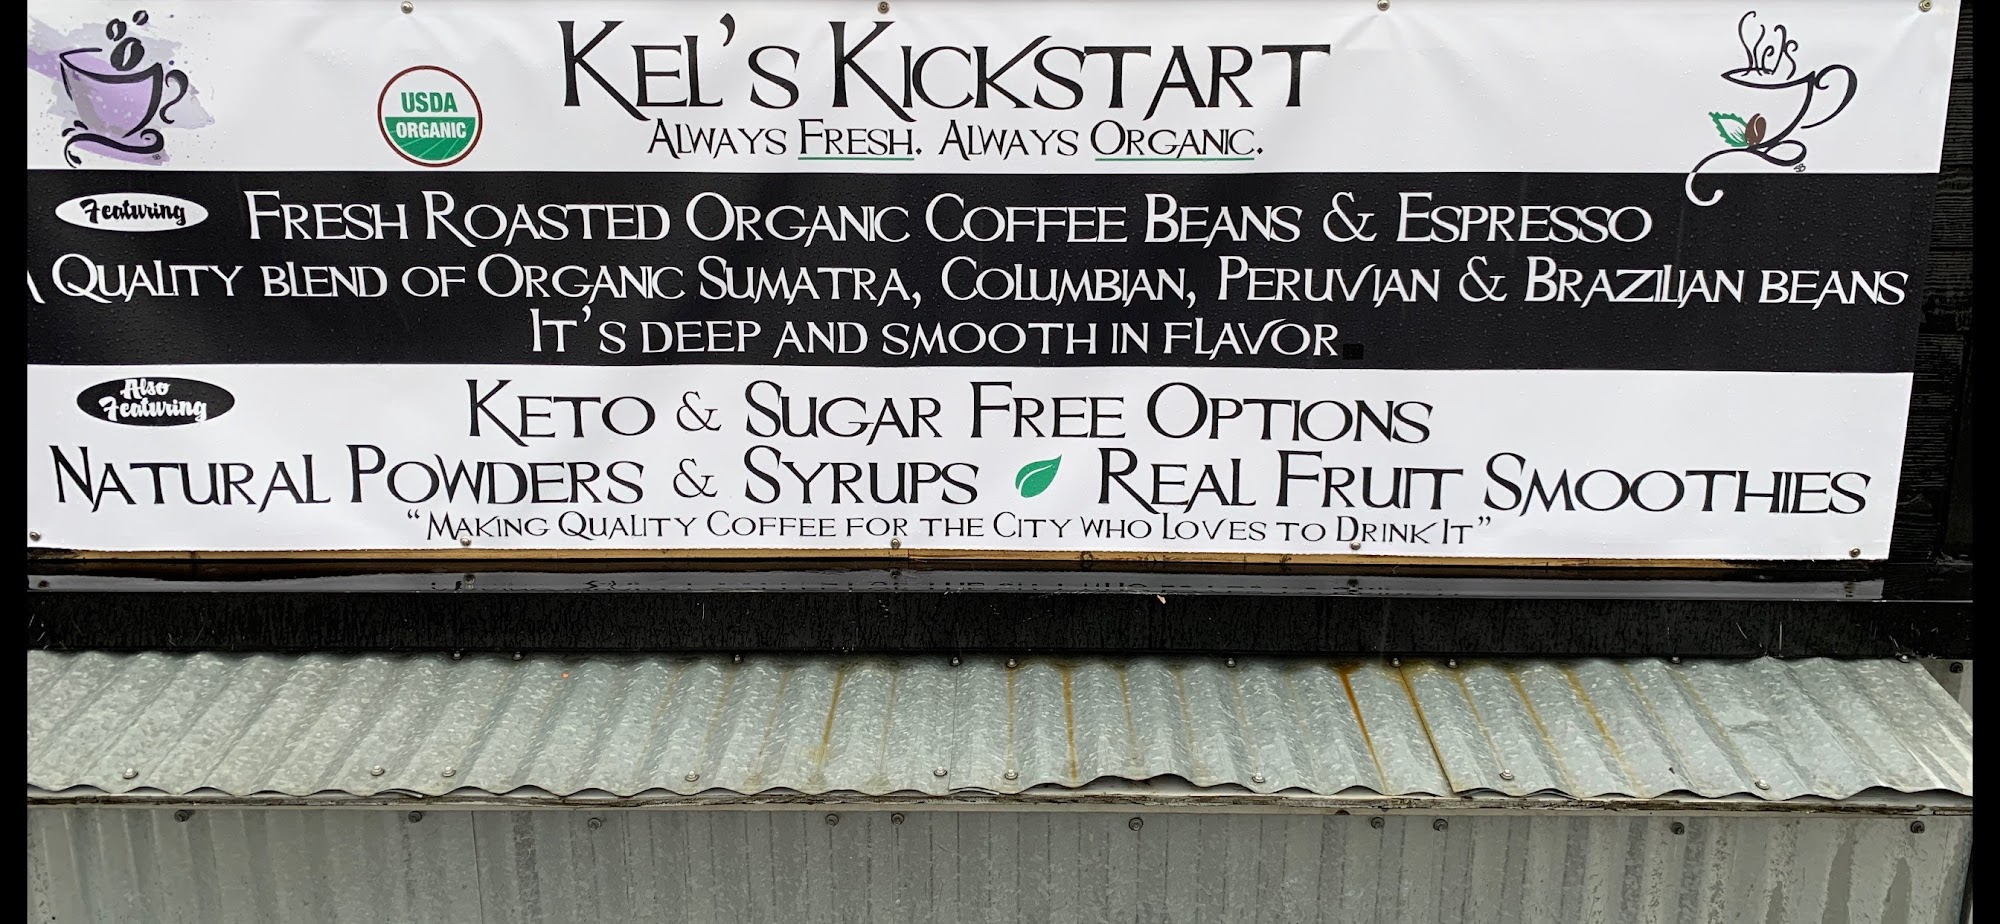 KEL'S KICKSTART
USDA
ORGANIC
ALWAYS FRESH. ALWAYS ORGANIC.
Featuring
FRESH ROASTED ORGANIC COFFEE BEANS & ESPRESSO
A QUALITY BLEND OF ORGANIC SUMATRA, COLUMBIAN, PERUVIAN & BRAZILIAN BEANS
IT'S DEEP AND SMOOTH IN FLAVOR
Also
Featuring
KETO & SUGAR FREE OPTIONS
NATURAL POWDERS & SYRUPS REAL FRUIT SMOOTHIES
"MAKING QUALITY COFFEE FOR THE CITY WHO LOVES TO DRINK IT"